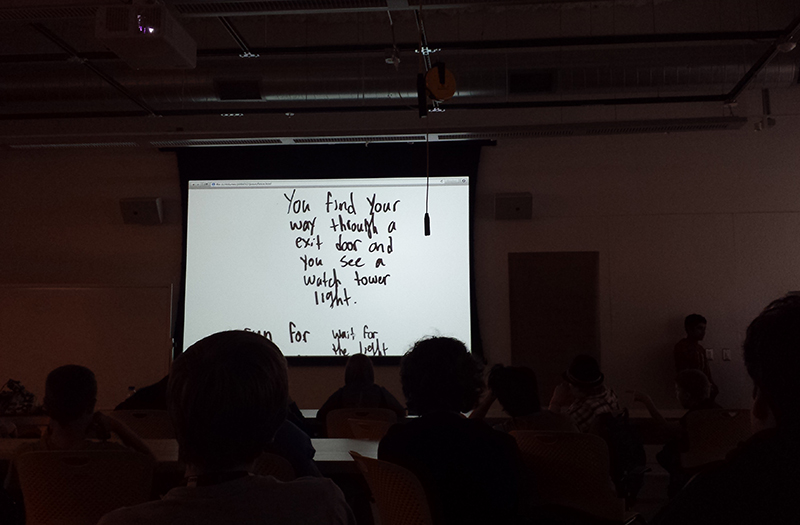 You find your
way through a
exit door and
you see a
watch tower
light.
run for wait for
the light